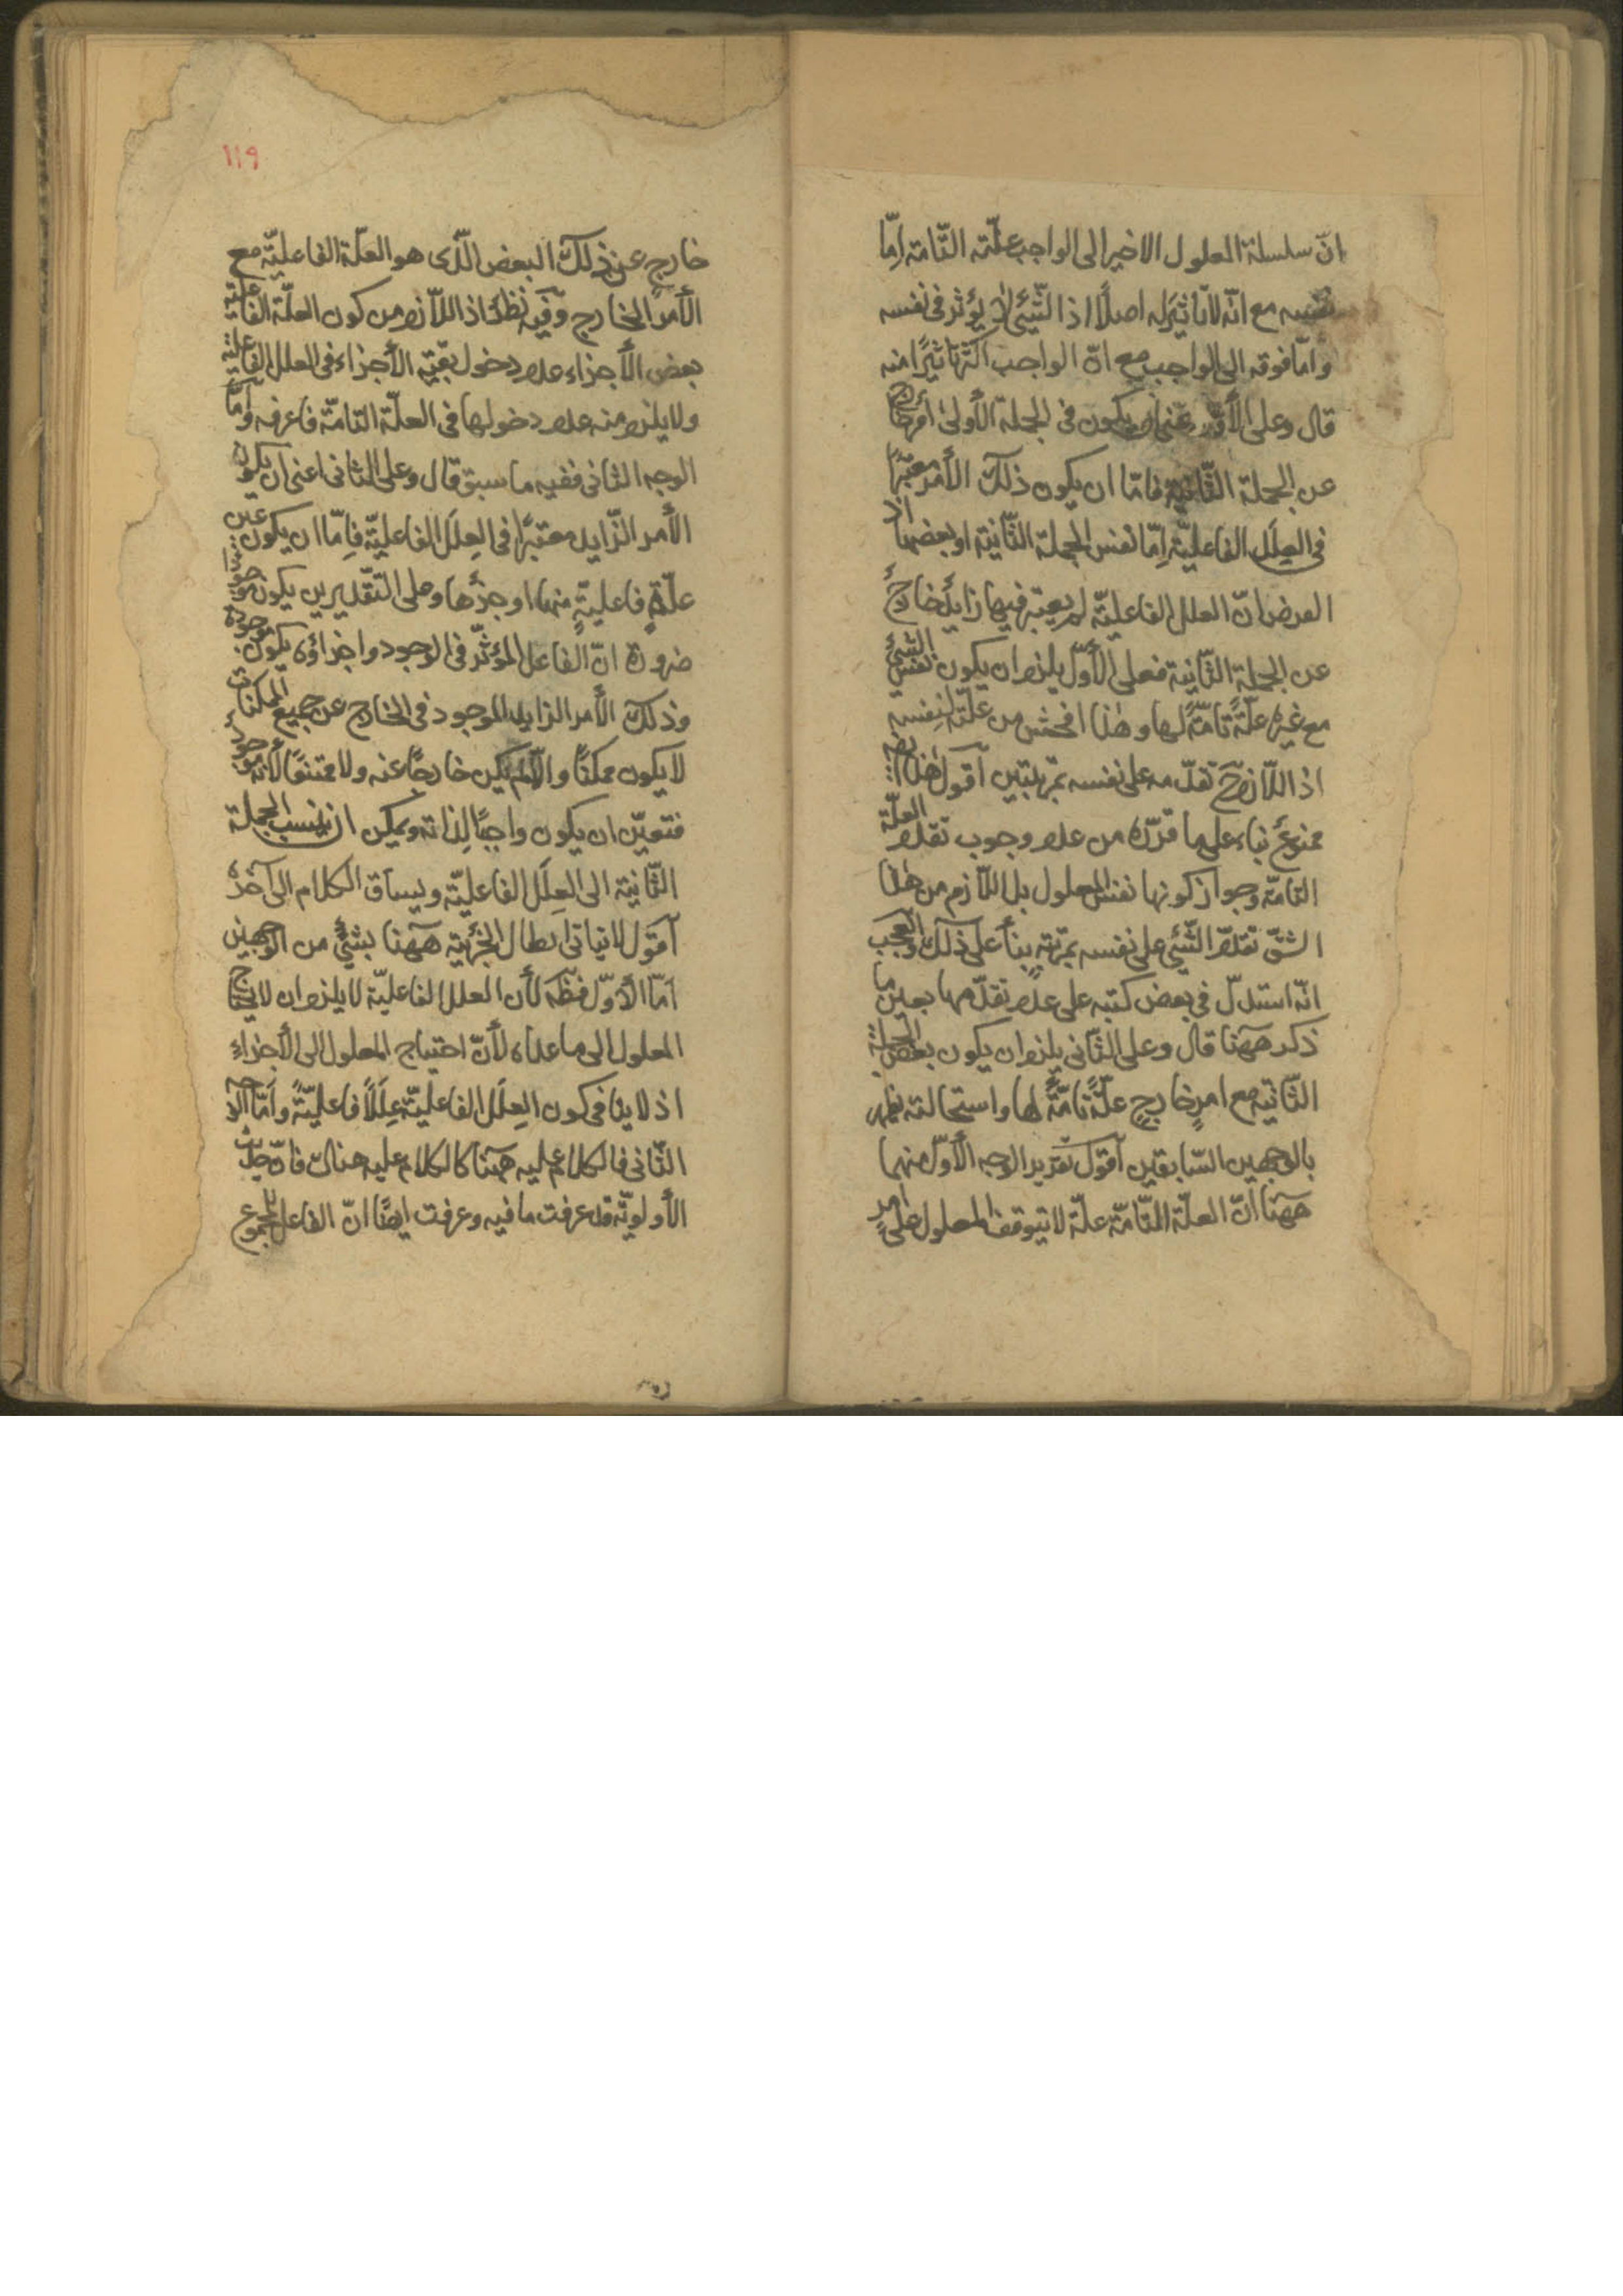 انّ سلسلة المعلول الاخير الى الواجب علّته التّامة امّا
نفسه مع انّه لا تاثير له اصلًا اذ الشّيئ لا يؤثر في نفسه
وامّا فوقه الى الواجب مع انّ الواجب اكثر تاثيرًا منه
قال وعلى الأوّل اعنى ان يكون في الجملة الأولى أمر خارج
عن الجملة الثّانية فامّا ان يكون ذلك الأمر معتبرًا
في العِلَل الفاعليّة امّا نفس الجملة الثّانية او بعضها اذ
الفرض انّ العلل الفاعليّة لم يعتبر فيها زايدٌ خارجٌ
عن الجملة الثّانية فعلى الأوّل يلزم ان يكون نفس الشّيئ
مع غيره علّةً تامّةً لها وهذا افحش من علّته لنفسه
اذ اللّازم ح تقدّمه على نفسه بمرتبتين اقول هذا ايضا
ممنوعٌ بناء على ما قرّره من عدم وجوب تقدم العلّة
التامّة وجواز كونها نفس المعلول بل اللّازم من هذا
الشقّ تقدم الشّيئ على نفسه بمرتبةٍ بناءً على ذلك والعجب
انّه استدلّ في بعض كتبه على عدم تقدّمها بعين ما
ذكر ههنا قال وعلى الثّاني يلزم ان يكون بعض الجملة
الثّانية مع امرٍ خارجٍ علّةً تامّةً لها واستحالته يظهر
بالوجهين السّابقين اقول تقرير الوجه الأوّل منهما
ههنا انّ العلّة التّامّة علّة لا يتوقف المعلول على امرٍ
١١٩
خارجٍ عن ذلك البعض الّذى هو العلّة الفاعليّة مع
الأمر الخارج وفيه نظرٌ اذ اللّازم من كون العلّة الفاعليّة
بعض الأجزاء عدم دخول بقيّة الأجزاء في العلل الفاعليّة
ولا يلزم منه عدم دخولها في العلّة التامّة فاعرفه وامّا
الوجه الثاني ففيه ما سبق قال وعلى الثاني اعنى ان يكون
الأمر الزّايد معتبرًا في العِلَل الفاعليّة فامّا ان يكون عين
علّةٍ فاعليةٍ منها او جزؤها وعلى التّقديرين يكون موجودا
ضرورة انّ الفاعل المؤثّر في الوجود واجزاؤه يكون موجودة
وذلك الأمر الزايد الموجود في الخارج عن جميع الممكنات
لا يكون ممكنًا والّا لم يكن خارجًا عنه ولا ممتنعًا لأنّه موجودٌ
فتعيّن ان يكون واجبًا لذاته ويمكن ان ينسب الجملة
الثّانية الى العِلَل الفاعليّة ويساق الكلام الى آخره
اقول لا يتاتى ابطال الجزئية ههنا بشئٍ من الوجهين
امّا الأوّل فظه لأن العلل الفاعليّة لا يلزم ان لا يحتاج
المعلول الى ما عداه لأنّ احتياج المعلول الى الأجزاءِ
اذ لا ينافى كون العِلَل الفاعليّة عِلَلًا فاعليّةً وامّا الوجه
الثّاني فالكلام عليه ههنا كالكلام عليه هناك فانّ حديث
الأولويّة قد عرفت ما فيه وعرفت ايضًا انّ الفاعل للمجموع